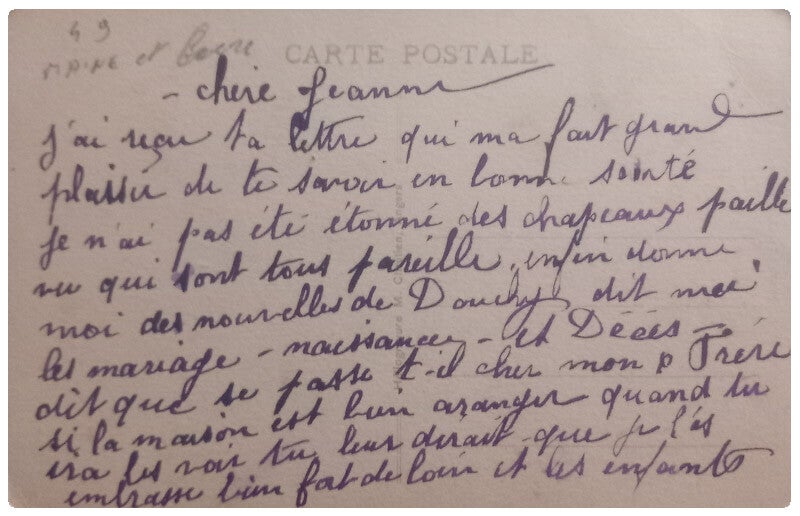 49
MAINE et Loire
CARTE POSTALE
- chère Jeanne
j'ai reçu ta lettre qui ma fait grand
plaisir de te savoir en bonne santé
je n'ai pas été étonné des chapeaux paille
vu qui sont tous pareille, enfin donne
moi des nouvelles de Douchy, dit moi
les mariage - naissance - et Décès -
dit que se passe t-il cher mon p Frére
si la maison est bien aranger quand tu
ira les voir tu leur dirait que je l'és
embrasse bien fort de loin et les enfants